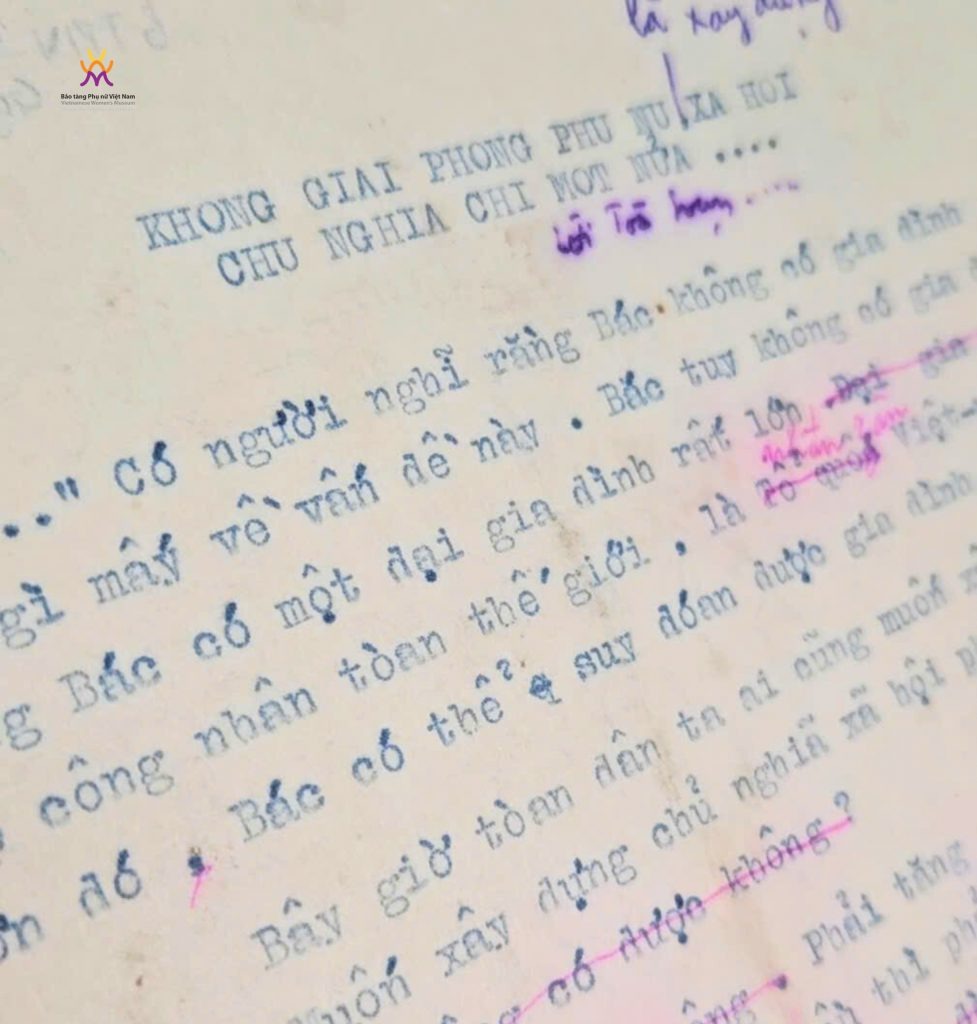 là xây dựng
Bảo tàng Phụ nữ Việt Nam
Vietnamese Women's Museum
KHONG GIAI PHONG PHU NU XA HOI
CHU NGHIA CHI MOT NỬA ....
..." Có người nghĩ rằng Bác không có gia đình
gì mấy về vấn đề này . Bác tuy không có gia
Bác có một đại gia đình rất lớn . Đại gia
công nhân tòan thế giới . là Tổ quốc Việt-
đó . Bác có thể suy đóan được gia đình
Bây giờ tòan dân ta ai cũng muốn
Muốn xây dựng chủ nghiã xã hội
có được không ?
Phải tăng
thì